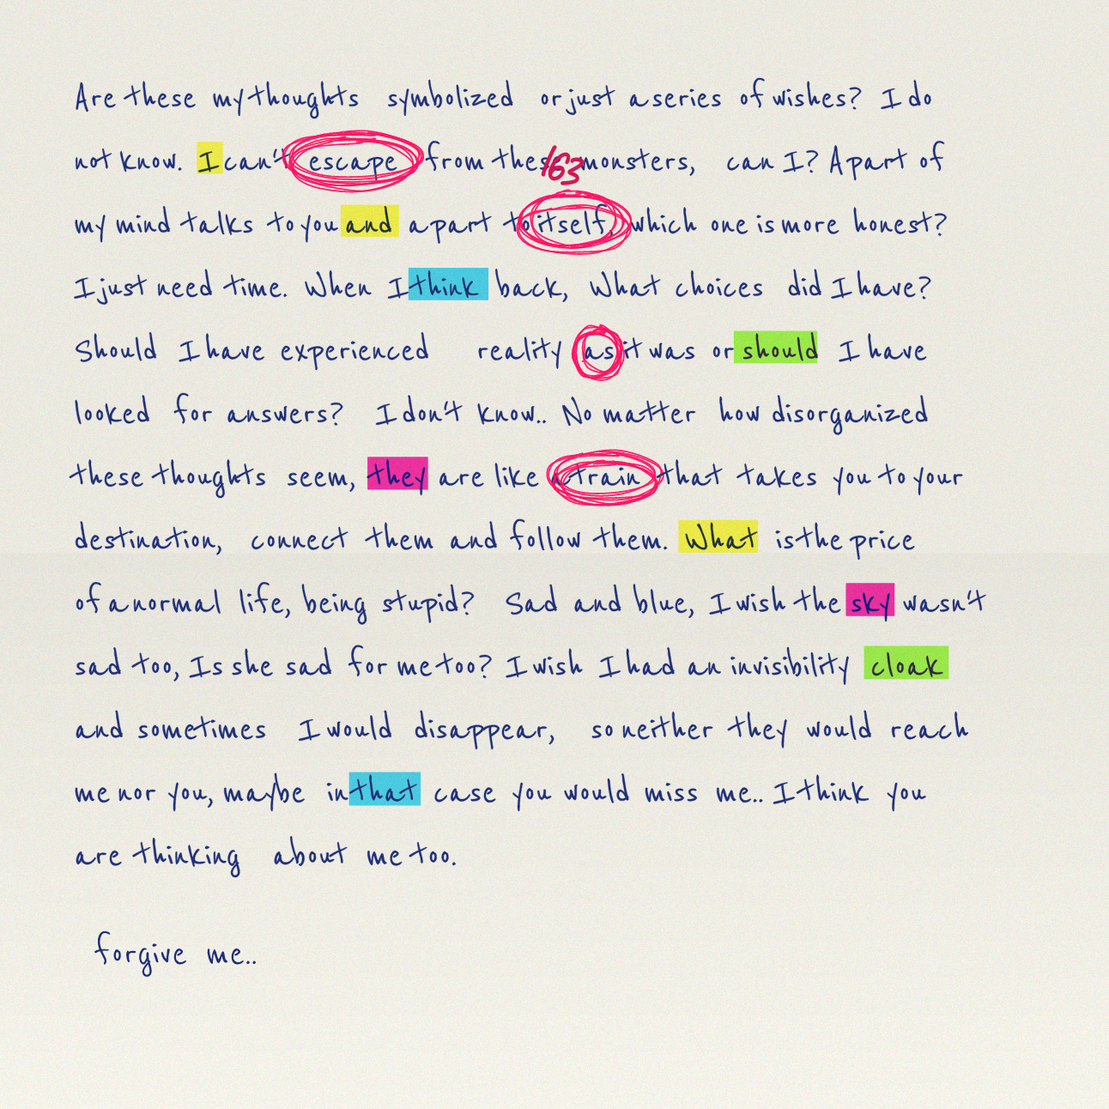 Are these my thoughts symbolized or just a series of wishes? I do
not know. I can't escape from these 163 monsters, can I? A part of
my mind talks to you and a part to itself, which one is more honest?
I just need time. When I think back, What choices did I have?
Should I have experienced reality as it was or should I have
looked for answers? I don't know.. No matter how disorganized
these thoughts seem, they are like a train that takes you to your
destination, connect them and follow them. What is the price
of a normal life, being stupid? Sad and blue, I wish the sky wasn't
sad too, Is she sad for me too? I wish I had an invisibility cloak
and sometimes I would disappear, so neither they would reach
me nor you, maybe in that case you would miss me.. I think you
are thinking about me too.
forgive me..